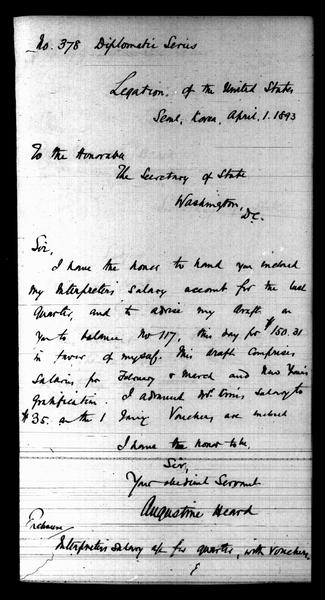 No. 378 Diplomatic Series
Legation of the United States
Seoul, Korea, April 1. 1893
To the Honorable
The Secretary of State
Washington,
D.C.
Sir,
I have the honor to hand you enclosed
my Interpreter's salary account for the last
quarter, and to advise my draft on
you to balance No 117, this day for $150.31
in favor of myself. This draft comprises
Salaries for February & March and New Years
gratification. I advanced Mr. salary to
$35. on the 1 Vouchers are enclosed
I have the honor to be,
Sir,
Your obedient Servant
Augustine Heard
Enclosure
Interpreters salary a/c for quarter, with Vouchers.